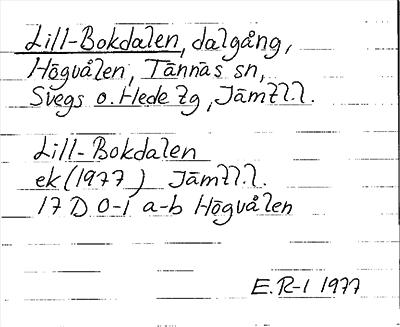 Lill-Bokdalen, dalgång,
Högvålen, Tännäs sn,
Svegs o. Hede tg, Jämtl.l.
Lill-Bokdalen
ek (1977) Jämtl.l.
17 D 0-1 a-b Högvålen
E.R-l 1977